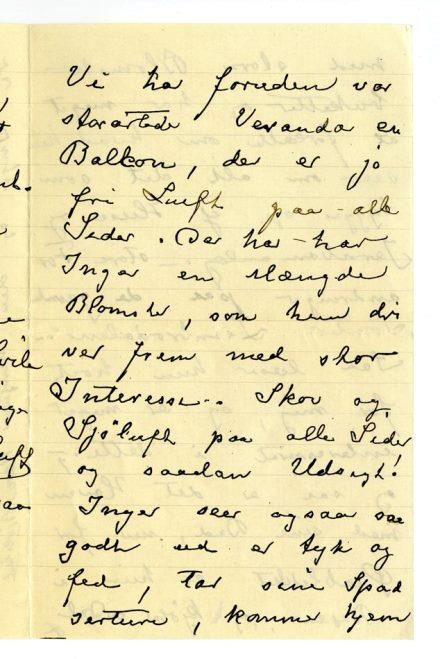 Vi har foruden vor
storartede Veranda en
Balkon, der er jo
fri Luft paa alle
Sider. Der har – har
Inger en Mængde
Blomster, som hun dri
ver frem med stor
Interesse. Skov og
Sjöluft paa alle Sider
og saadan Udsigt!
Inger seer ogsaa saa
godt ud er tyk og
fed, tar sine Spad
serture, kommer hjem